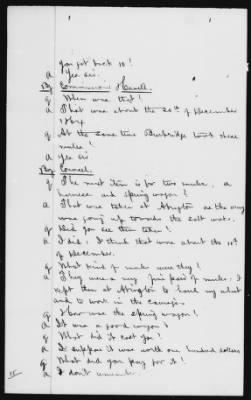 you got back 10?
a Yes sir.
By Commissioner Howell.
q When was that?
a That was about the 20th of December
1864
q At the same time Burbridge took those
mules?
a Yes sir
By Counsel.
q The next item is for two mules, a
harness and spring wagon?
a That was taken at Abington as the army
was going up towards the salt works.
q Did you see them taken?
a I did; I think that was about the 10th
of December.
q What kind of mules were they?
a They were a very fine pair of mules. I
kept them at Abington to haul my wheat
and to work in the carriage
q How was the spring wagon?
a It was a good wagon?
q What did it cost you?
a I suppose it was worth one hundred dollars
q What did you pay for it?
a I don't remember